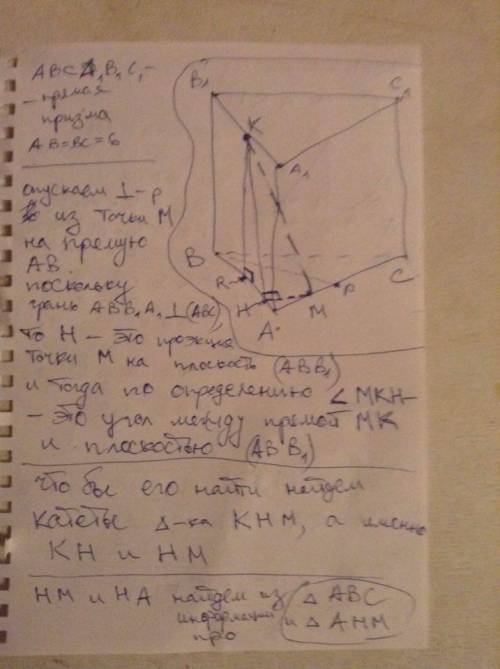 ABCA₁B₁C₁ –
– прямая
призма
AB=BC=6
опускаем ⊥-р
из точки M
на прямую
AB.
поскольку
грань ABB₁A₁ ⊥ (ABC)
то H – это проекция
точки M на плоскость (ABB₁)
и тогда по определению ∠MKH –
– это угол между прямой MK
и плоскостью (ABB₁)
что бы его найти найдем
катеты Δ-ка KHM, а именно
KH и HM
HM и HA найдем из Δ ABC
информации и Δ AHM
про
B₁
C₁
K
A₁
B
C
R
P
H
M
A